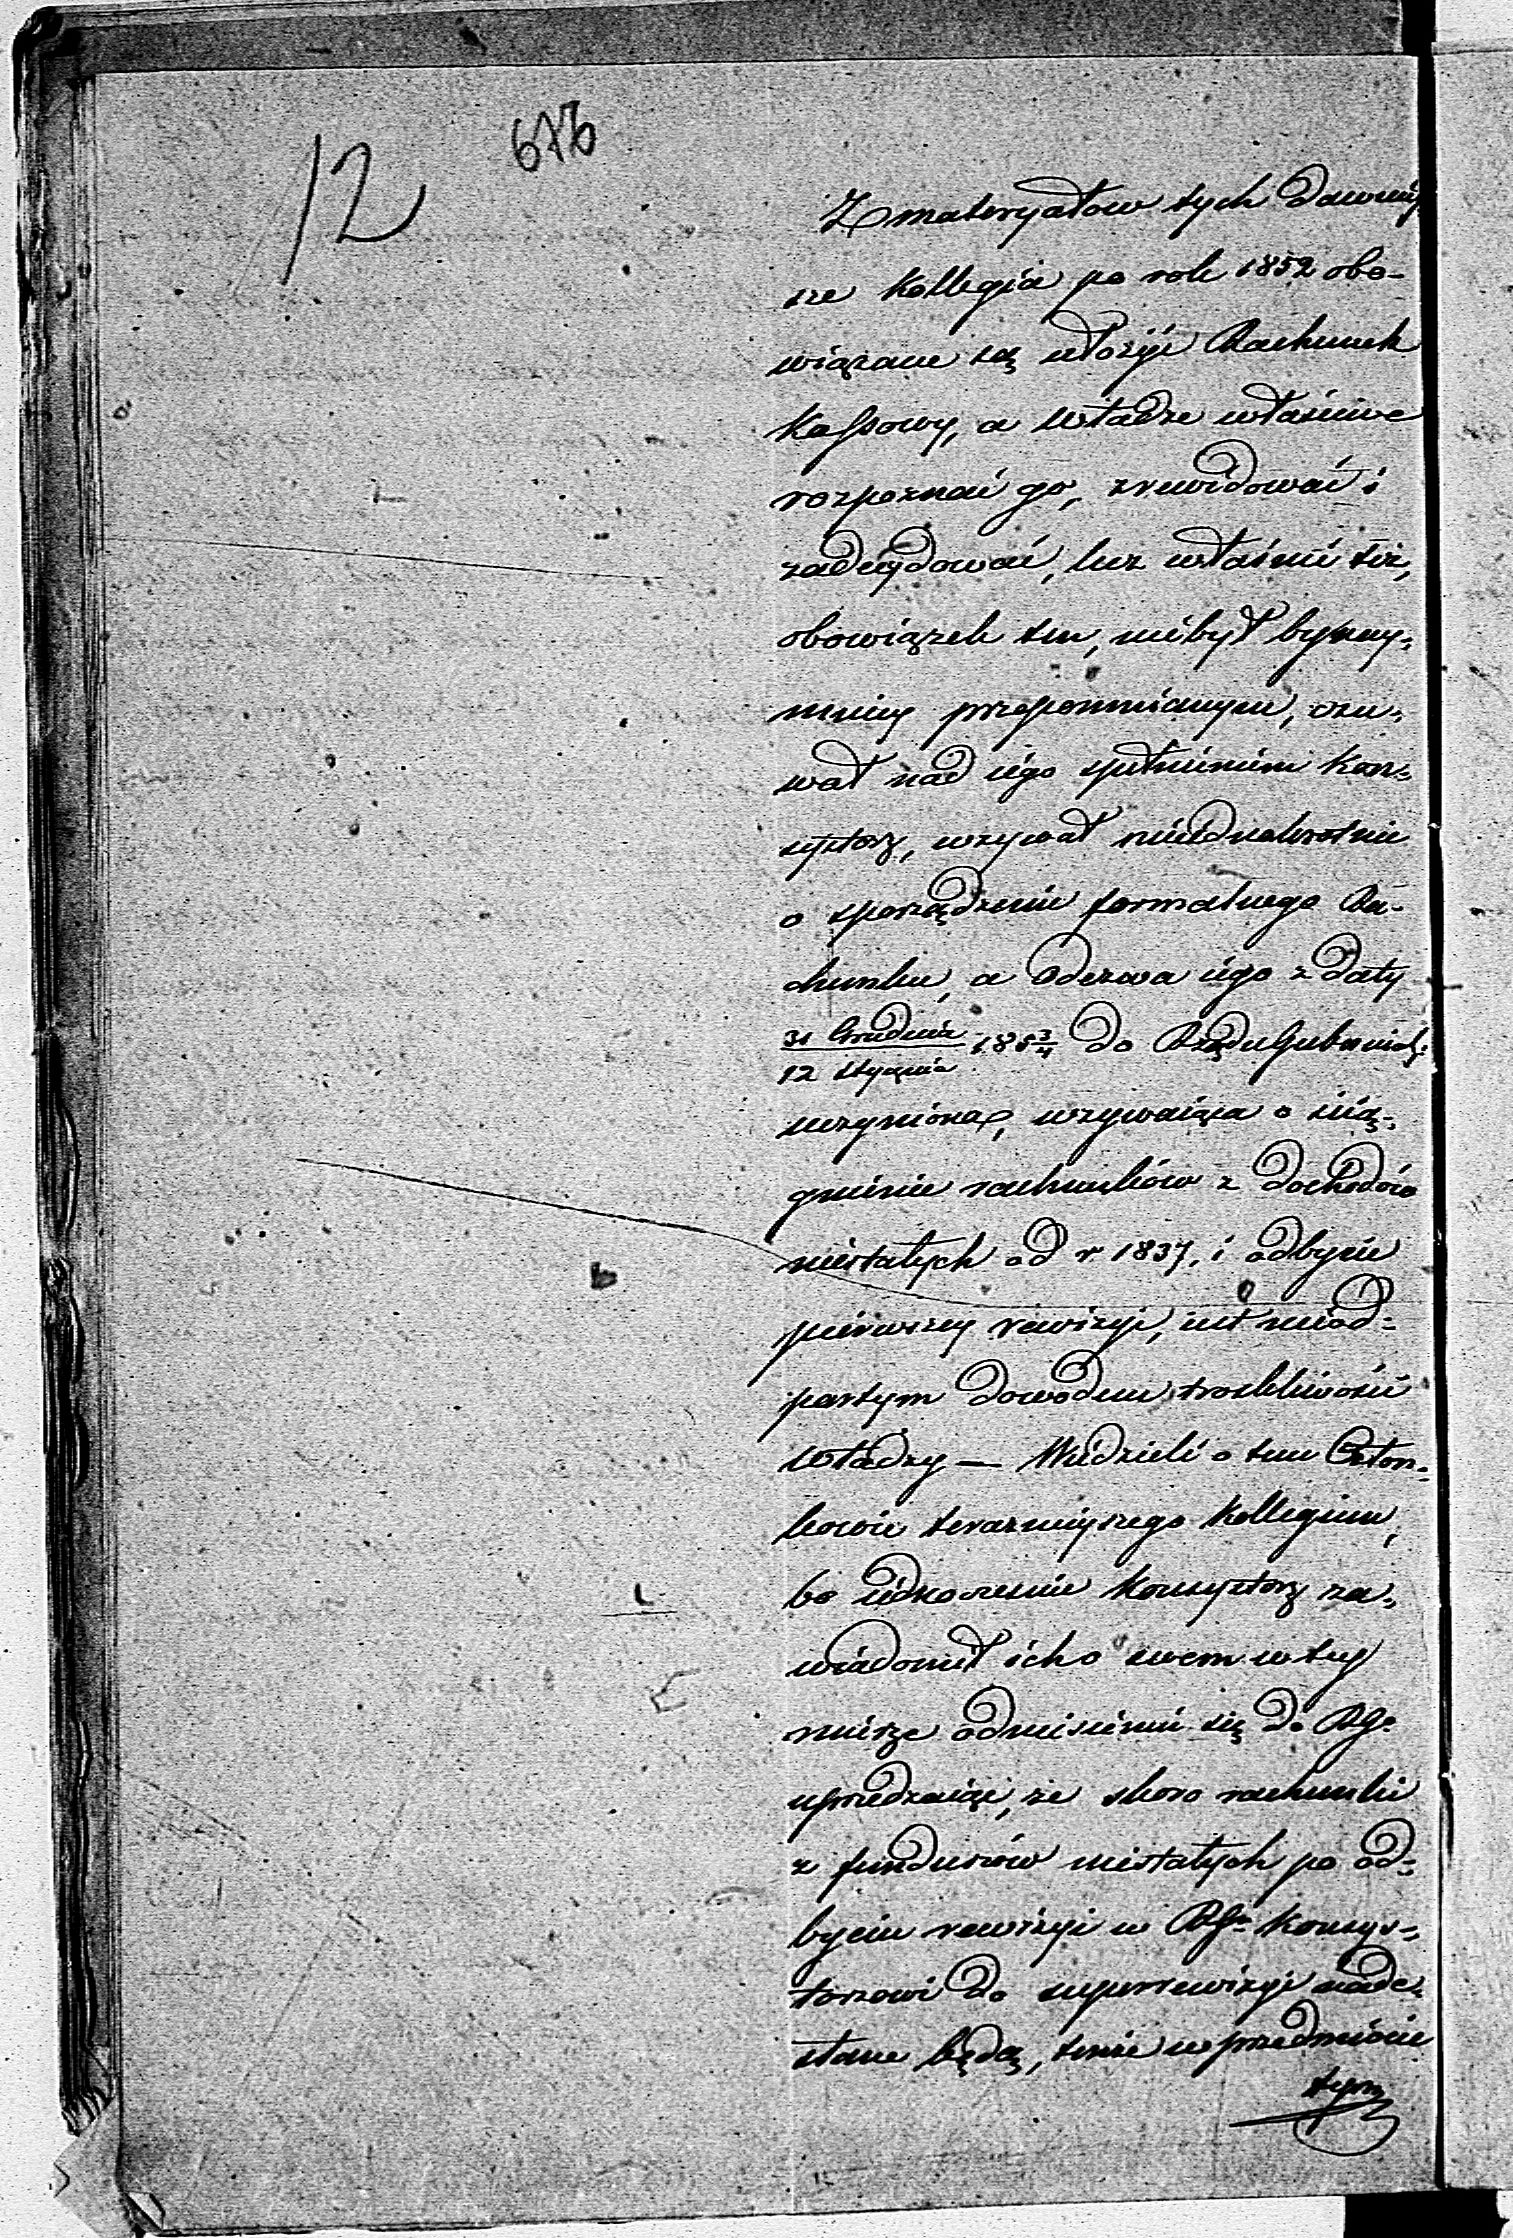 12
676
Z materyałow tych dawniey
sze Kollegia po rok 1852 obo-
wiązane są ułożyć Rachunek
Kassowy, a Władze właściwe
rozpoznać go, zrewidować i
zadecydować, lecz właśnie też,
obowiązek ten, niebył bynay-
mniey przepomnianym, czu-
wał nad iego spełnieniem Kon-
systorz, wzywał nieiednokrotnie
o sporządzenie formalnego Ra-
chunku, a Odezwa iego z daty
31 Grudnia
12 Stycznia 185 3/4 do Rządu Gubernial:
uczyniona, wzywaiąca o ścią-
gnienie rachunków z dochodów
niestałych od r. 1837, i odbycie
pierwszey rewizyi, iest nieod-
partym dowodem troskliwości
Władzy — Wiedzieli o tem Człon-
kowie terazniejszego Kollegium,
bo iednocześnie Konsystorz za-
wiadomił ich o swem w tey
mierze odniesieniu się do RGo
uprzedzaiąc, że skoro rachunki
z funduszów niestałych po od-
byciu rewizyi w RGm Konsys-
torzowi do superrewizyi nade-
słane będą, tenże w przedmiocie
tym